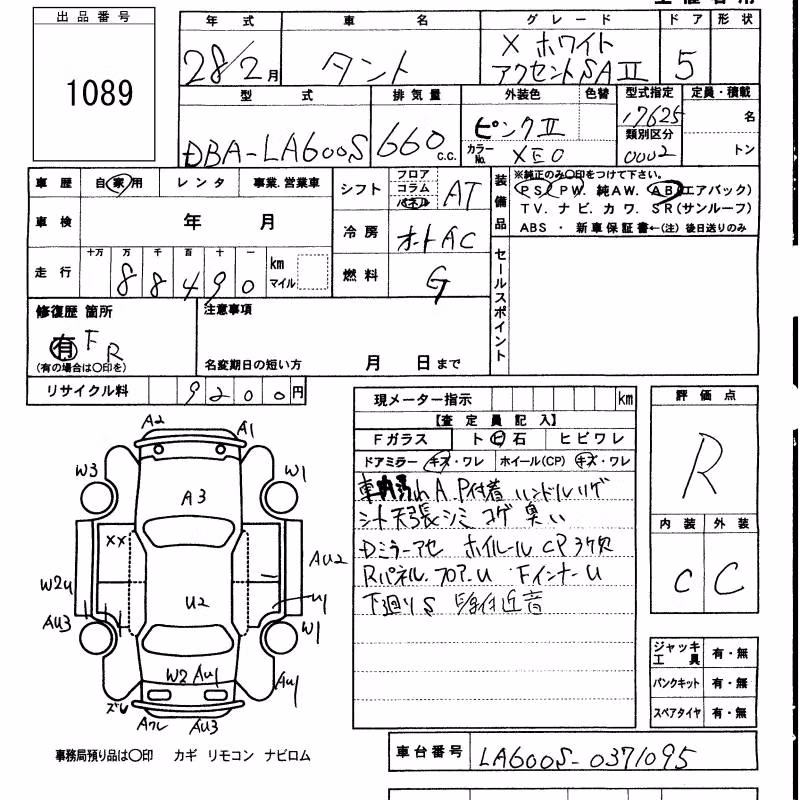 出品番号
1089
年式 車名 グレード ドア 形状
28/2月 タント X ホワイト アクセントSAⅡ 5
型式 排気量 外装色 色替 型式指定 定員・積載
DBA-LA600S 660 c.c. ピンクⅡ 17625 名
カラーNo. XEO 類別区分 0002 トン
車歴 自家用 レンタ 事業.営業車
シフト フロア コラム パネル AT
車検 年 月
冷房 オートAC
走行 十万 万 千 百 十 一
88490 km マイル
燃料 G
装備品
※純正のみ○印をつけて下さい。
PS. PW. 純AW. AB(エアバック)
TV. ナビ. カワ. SR(サンルーフ)
ABS ・ 新車保証書←(注) 後日送りのみ
セールスポイント
修復歴 箇所
有 F R
(有の場合は○印を)
注意事項
名変期日の短い方 月 日まで
リサイクル料 9200円
現メーター指示 km
【査定員記入】
Fガラス トビ石 ヒビワレ
ドアミラー キズ・ワレ ホイール(CP) キズ・ワレ
A.P付着 ハンドルハゲ
シート天張シミ コゲ 臭い
Dミラーアセ ホイルールCP3ケ欠
Rパネル.フロアーU FインナーU
下廻りS
評価点
R
内装 外装
C C
A2 A1
W3 W1
A3
XX
AU2
W2U U2 U1
AU3 W1
W2 AU1 AU1
ズレ
Aワレ AU3
ジャッキ 工具 有・無
パンクキット 有・無
スペアタイヤ 有・無
事務局預り品は○印 カギ リモコン ナビロム
車台番号 LA600S-0371095